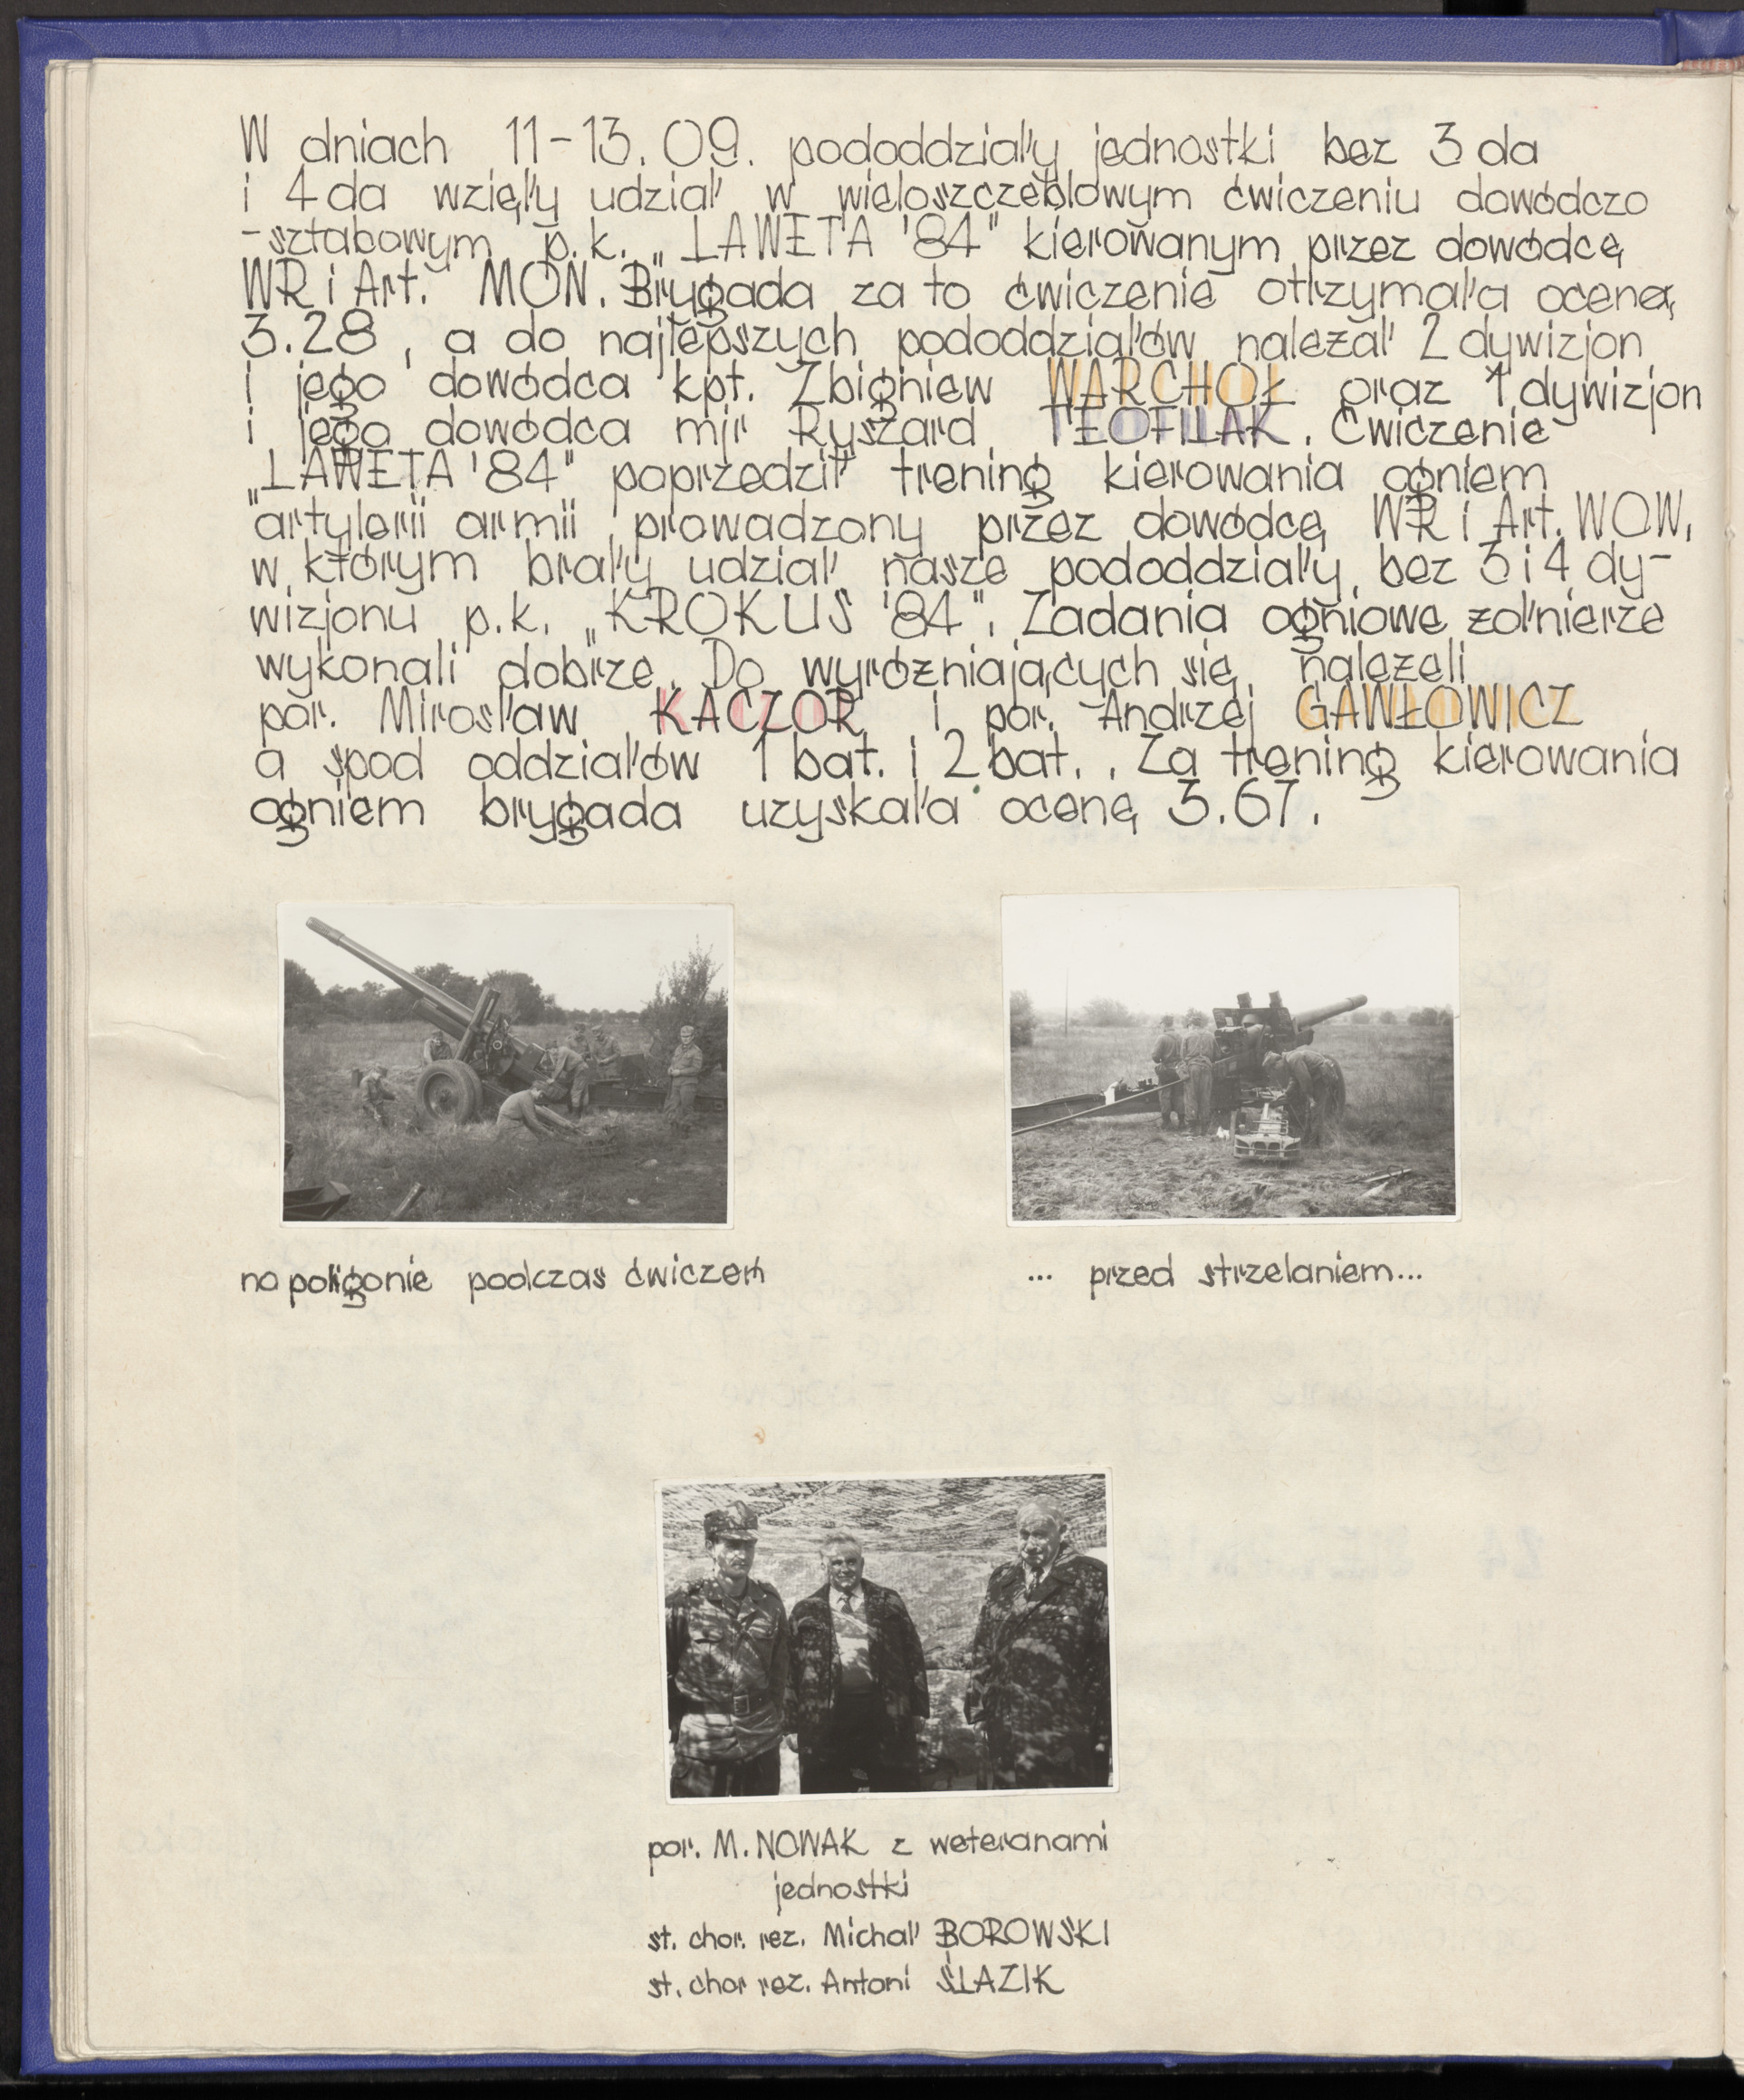 W dniach 11-13.09. pododdziały jednostki bez 3 da
i 4 da wzięły udział w wieloszczeblowym ćwiczeniu dowódczo
-sztabowym p.k. „LAWETA '84" kierowanym przez dowódcę
WR i Art. MON. Brygada za to ćwiczenie otrzymała ocenę
3.28, a do najlepszych pododdziałów należał 2 dywizjon
i jego dowódca kpt. Zbigniew WARCHOŁ oraz 1 dywizjon
i jego dowódca mjr Ryszard TEOFILAK. Ćwiczenie
„LAWETA '84" poprzedził trening kierowania ogniem
artylerii armii prowadzony przez dowódcę WR i Art. WOW,
w którym brały udział nasze pododdziały bez 3 i 4 dy-
wizjonu p.k. „KROKUS '84". Zadania ogniowe żołnierze
wykonali dobrze. Do wyróżniających się należeli
por. Mirosław KACZOR i por. Andrzej GAWŁOWICZ
a spod oddziałów 1 bat. i 2 bat.. Za trening kierowania
ogniem brygada uzyskała ocenę 3.67.
na poligonie podczas ćwiczeń
... przed strzelaniem...
por. M. NOWAK z weteranami
jednostki
st. chor. rez. Michał BOROWSKI
st. chor rez. Antoni ŚLAZIK